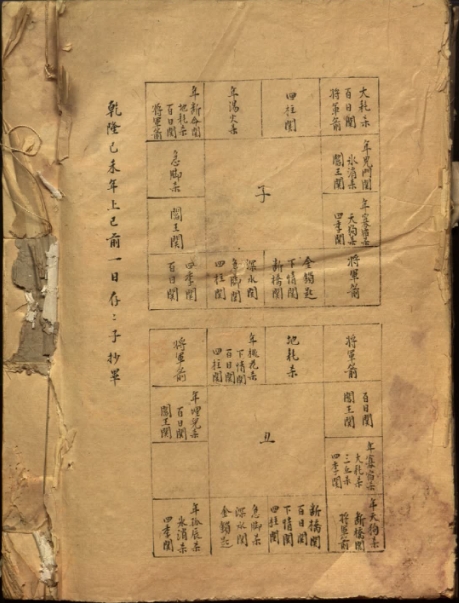 大耗杀
百日關
將軍箭
四柱關
年湯火杀
年斷命關
地耗杀
百日關
將軍箭
年鬼門關
氷消杀
閻王關
子
急脚杀
年寡宿杀
天狗杀
四季關
閻王關
將軍箭
金鎖匙
下情關
斷橋關
深水關
急脚關
四柱關
四季關
百日關
將軍箭
地耗杀
年桃花杀
下情關
百日關
四柱關
將軍箭
百日關
閻王關
丑
年埋兒杀
百日關
閻王關
年寡宿杀
大耗杀
四季關
年天狗杀
斷橋關
將軍箭
斷橋關
百日關
下情關
四柱關
急脚杀
深水關
金鎖匙
年孤辰杀
氷消杀
四季關
乾隆己未年上巳前一日存〻子抄畢